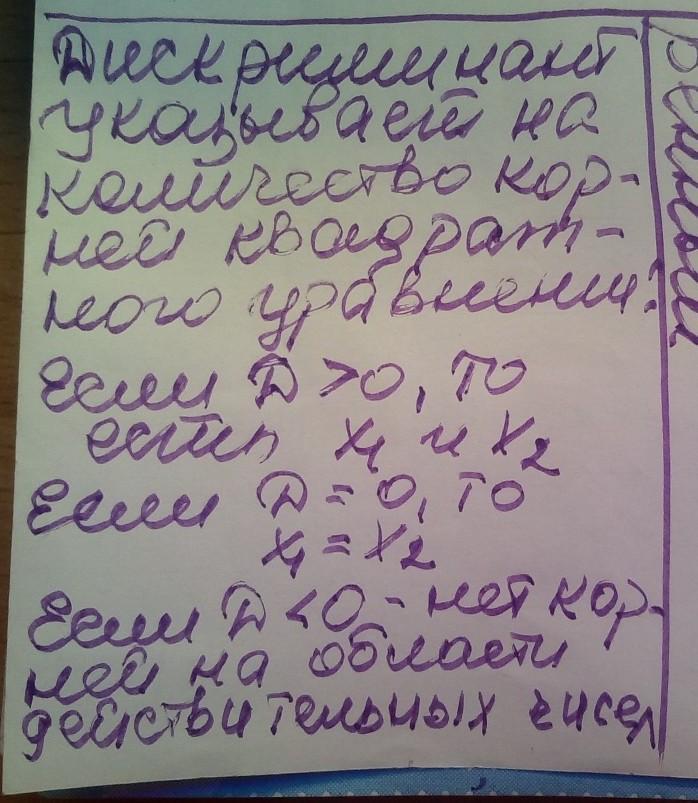 Дискриминант
указывает на
количество кор-
ней квадрат-
ного уравнения:
Если D >0, то
есть x₁ и x₂
Если D = 0, то
x₁ = x₂
Если D <0 - нет кор-
ней на области
действительных чисел